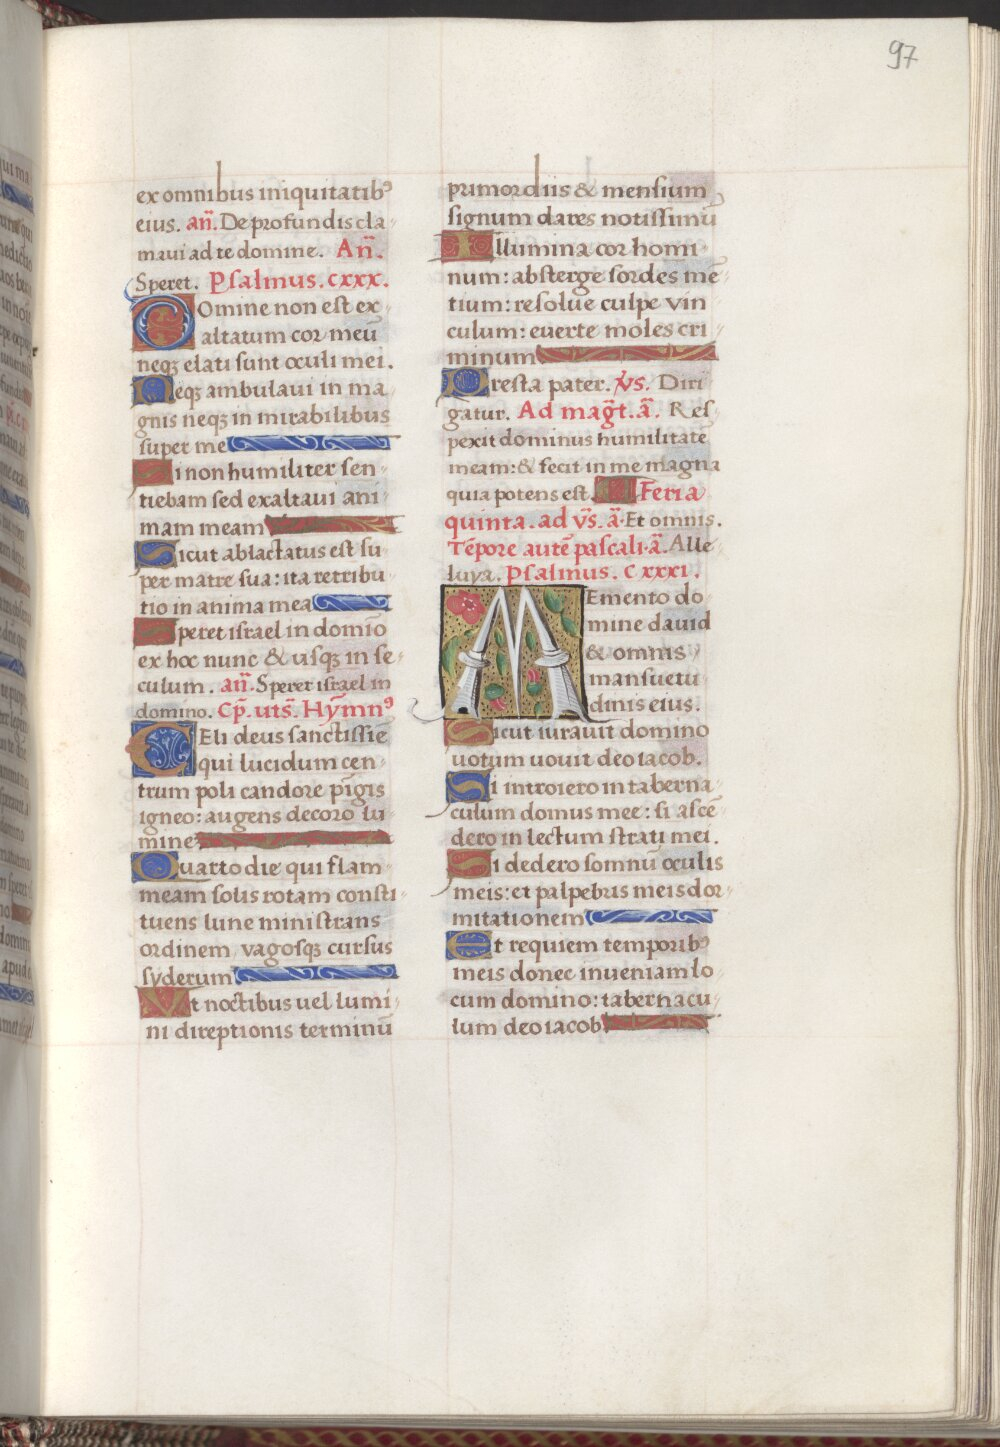 97
ex omnibus iniquitatibꝰ
eius. añ. De profundis cla
maui ad te domine. Añ.
Speret. Psalmus. cxxx.
Domine non est ex
altatum cor meū
neqꝫ elati sunt oculi mei.
Neqꝫ ambulaui in ma
gnis neqꝫ in mirabilibus
super me
Si non humiliter sen
tiebam sed exaltaui ani
mam meam
Sicut ablactatus est su
per matre sua: ita retribu
tio in anima mea
Speret israel in domīo
ex hoc nunc & usqꝫ in se
culum. añ. Speret israel in
domino. Cp̄. uts̄. Hȳmnꝰ
CEli deus sanctissie
qui lucidum cen
trum poli candore pīgis
igneo: augens decoro lu
mine
Quarto die qui flam
meam solis rotam consti
tuens lune ministrans
ordinem vagosqꝫ cursus
syderum
Vt noctibus uel lumi
ni direptionis terminū
primordiis & mensium
signum dares notissimū
Illumina cor homi
num: absterge sordes me
tium: resolue culpe vin
culum: euerte moles cri
minum
Presta pater. v̄s. Diri
gatur. Ad mag̃t. ā. Res
pexit dominus humilitate
meam: & fecit in me magna
quia potens est. Feria
quinta. ad v̄s. ā. Et omnis.
Tēpore autē pascali. ā. Alle
luya. Psalmus. Cxxxi.
MEmento do
mine dauid
& omnis
mansuetu
dinis eius.
Sicut iurauit domino
uotum uouit deo iacob.
Si introiero in taberna
culum domus mee: si ascē
dero in lectum strati mei.
Si dedero somnū oculis
meis: et palpebris meis dor
mitationem
Et requiem temporibꝰ
meis donec inueniam lo
cum domino: tabernacu
lum deo iacob